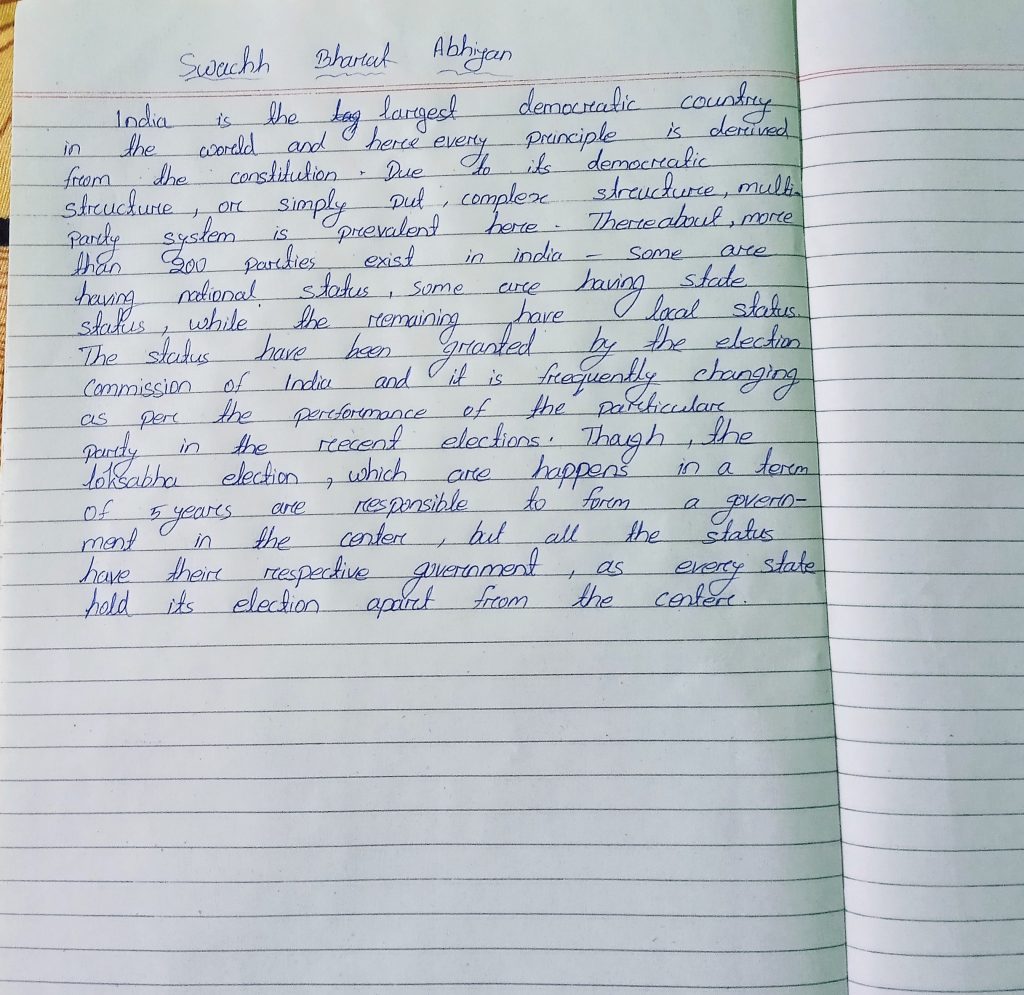 Swachh Bharat Abhiyan
India is the largest democratic country
in the world and here every principle is derived
from the constitution. Due to its democratic
structure, or simply put, complex structure, multi-
party system is prevalent here. Thereabout, more
than 200 parties exist in india - some are
having national status, some are having state
status, while the remaining have local status.
The status have been granted by the election
Commission of India and it is frequently changing
as per the performance of the particular
party in the recent elections. Though, the
loksabha election, which are happens in a term
of 5 years are responsible to form a govern-
ment in the center, but all the status
have their respective government, as every state
hold its election apart from the center.